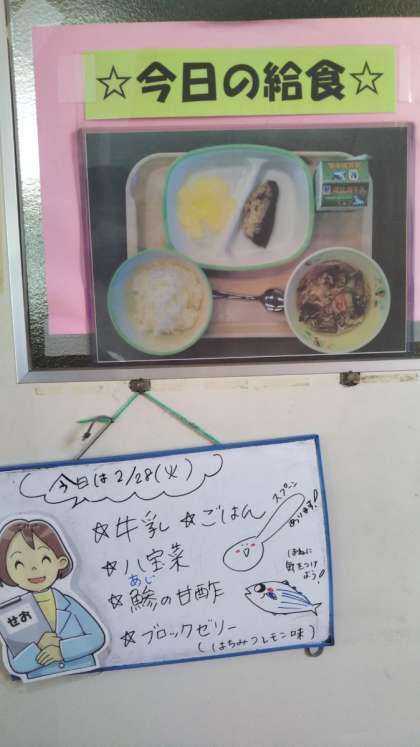 ☆今日の給食☆
今日は2/28(火)
☆牛乳 ☆ごはん
☆八宝菜
あじ
☆鯵の甘酢
☆ブロックゼリー
(はちみつレモン味)
スプーン
あります!
ほねに
気をつけ
よう!
せお